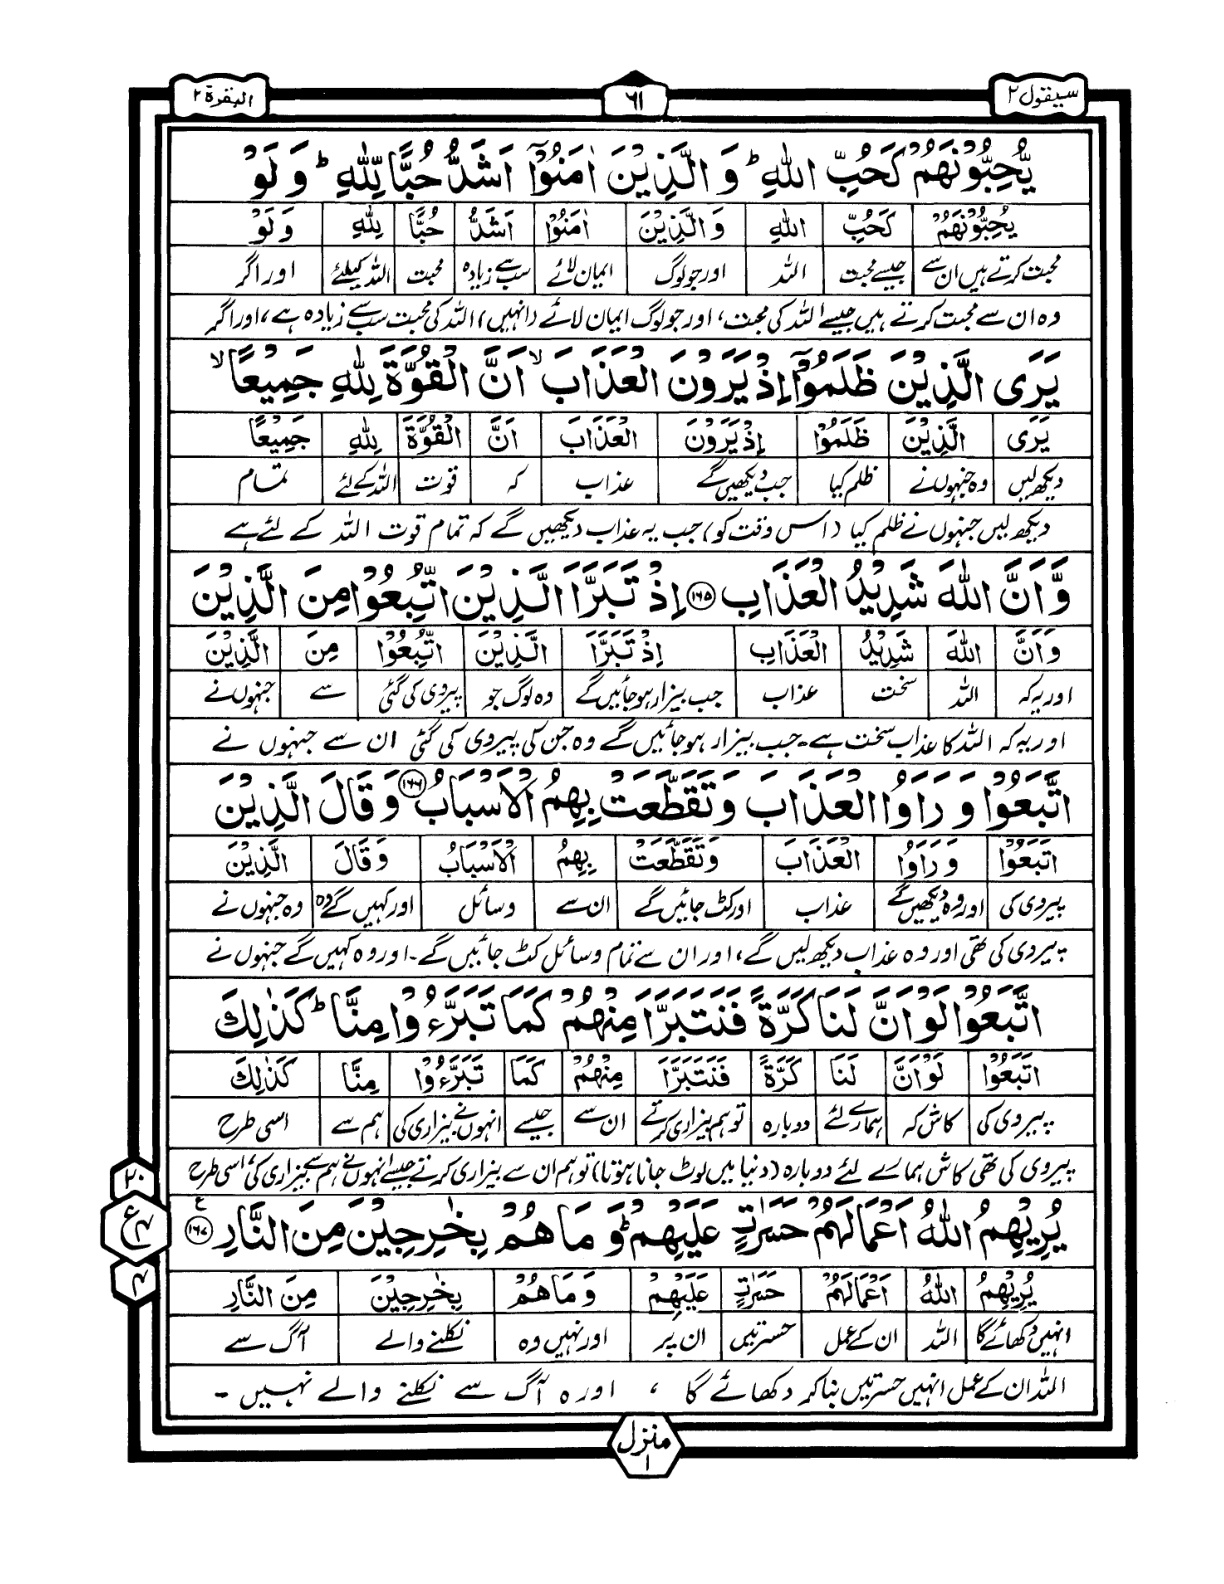 سیقول ۲
۶۱
البقرة ۲
يُّحِبُّوْنَهُمْ كَحُبِّ اللّٰهِ ؕ وَ الَّذِيْنَ اٰمَنُوْۤا اَشَدُّ حُبًّا لِّلّٰهِ ؕ وَ لَوْ
يُحِبُّوْنَهُمْ كَحُبِّ اللّٰهِ وَالَّذِيْنَ اٰمَنُوْۤا اَشَدُّ حُبًّا لِلّٰهِ وَ لَوْ
محبت کرتے ہیں ان سے جیسے محبت اللہ اور جو لوگ ایمان لائے سب سے زیادہ محبت اللہ کیلئے اور اگر
وہ ان سے محبت کرتے ہیں جیسے اللہ کی محبت، اور جو لوگ ایمان لائے (انہیں) اللہ کی محبت سب سے زیادہ ہے، اور اگر
يَرَى الَّذِيْنَ ظَلَمُوْۤا اِذْ يَرَوْنَ الْعَذَابَ ۙ اَنَّ الْقُوَّةَ لِلّٰهِ جَمِيْعًا ۙ
يَرَى الَّذِيْنَ ظَلَمُوْۤا اِذْ يَرَوْنَ الْعَذَابَ اَنَّ الْقُوَّةَ لِلّٰهِ جَمِيْعًا
دیکھ لیں وہ جنہوں نے ظلم کیا جب دیکھیں گے عذاب کہ قوت اللہ کے لئے تمام
دیکھ لیں جنہوں نے ظلم کیا (اس وقت کو) جب یہ عذاب دیکھیں گے کہ تمام قوت اللہ کے لئے ہے
وَّ اَنَّ اللّٰهَ شَدِيْدُ الْعَذَابِ ۱۶۵ اِذْ تَبَرَّاَ الَّذِيْنَ اتُّبِعُوْا مِنَ الَّذِيْنَ
وَ اَنَّ اللّٰهَ شَدِيْدُ الْعَذَابِ اِذْ تَبَرَّاَ الَّذِيْنَ اتُّبِعُوْا مِنَ الَّذِيْنَ
اور یہ کہ اللہ سخت عذاب جب بیزار ہو جائیں گے وہ لوگ جو پیروی کی گئی سے جنہوں نے
اور یہ کہ اللہ کا عذاب سخت ہے۔ جب بیزار ہو جائیں گے وہ جن کی پیروی کی گئی ان سے جنہوں نے
اتَّبَعُوْا وَ رَاَوُا الْعَذَابَ وَ تَقَطَّعَتْ بِهِمُ الْاَسْبَابُ ۱۶۶ وَ قَالَ الَّذِيْنَ
اتَّبَعُوْا وَ رَاَوُا الْعَذَابَ وَ تَقَطَّعَتْ بِهِمُ الْاَسْبَابُ وَ قَالَ الَّذِيْنَ
پیروی کی اور وہ دیکھیں گے عذاب اور کٹ جائیں گے ان سے وسائل اور کہیں گے وہ وہ جنہوں نے
پیروی کی تھی اور وہ عذاب دیکھ لیں گے، اور ان سے تمام وسائل کٹ جائیں گے۔ اور وہ کہیں گے جنہوں نے
اتَّبَعُوْا لَوْ اَنَّ لَنَا كَرَّةً فَنَتَبَرَّاَ مِنْهُمْ كَمَا تَبَرَّءُوْا مِنَّا ؕ كَذٰلِكَ
اتَّبَعُوْا لَوْ اَنَّ لَنَا كَرَّةً فَنَتَبَرَّاَ مِنْهُمْ كَمَا تَبَرَّءُوْا مِنَّا كَذٰلِكَ
پیروی کی کاش کہ ہمارے لئے دوبارہ تو ہم بیزاری کرتے ان سے جیسے انہوں نے بیزاری کی ہم سے اسی طرح
پیروی کی تھی کاش ہمارے لئے دوبارہ (دنیا میں لوٹ جانا ہوتا) تو ہم ان سے بیزاری کرتے جیسے انہوں نے ہم سے بیزاری کی اسی طرح
يُرِيْهِمُ اللّٰهُ اَعْمَالَهُمْ حَسَرٰتٍ عَلَيْهِمْ ؕ وَ مَا هُمْ بِخٰرِجِيْنَ مِنَ النَّارِ ۱۶۷ ع
يُرِيْهِمُ اللّٰهُ اَعْمَالَهُمْ حَسَرٰتٍ عَلَيْهِمْ وَ مَا هُمْ بِخٰرِجِيْنَ مِنَ النَّارِ
انہیں دکھائے گا اللہ ان کے عمل حسرتیں ان پر اور نہیں وہ نکلنے والے آگ سے
اللہ ان کے عمل انہیں حسرتیں بنا کر دکھائے گا ، اور وہ آگ سے نکلنے والے نہیں ۔
۲۰
ع
۴
۴
منزل
۱